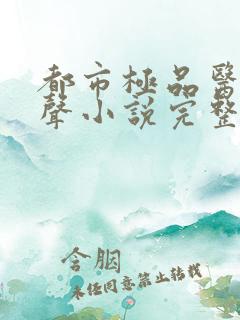 都市極品醫
聲小說完整
含胭
未经同意禁止转载